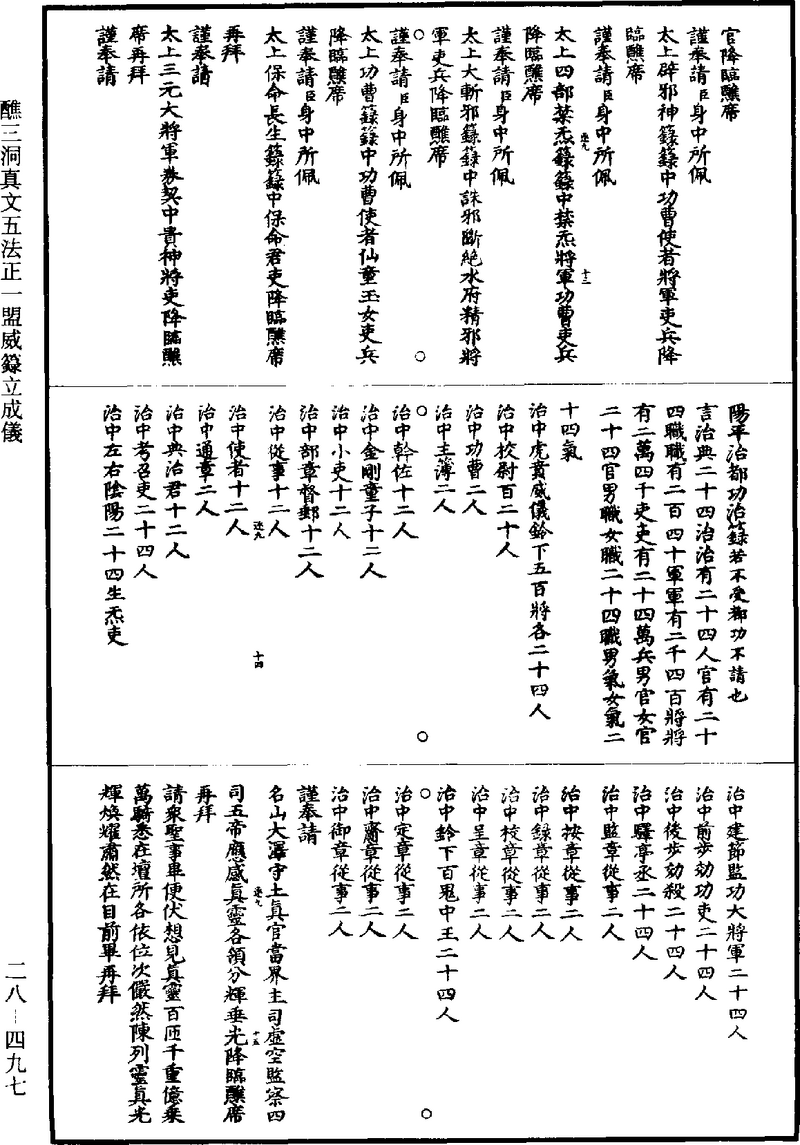 官降臨醮席
謹奉請臣身中所佩
太上辟邪神籙籙中功曹使者將軍吏兵降
臨醮席
謹奉請臣身中所佩
太上四部禁炁籙籙中禁炁將軍功曹吏兵
降臨醮席
謹奉請臣身中所佩
太上大斬邪籙籙中誅邪斷絕水府精邪將
軍吏兵降臨醮席
謹奉請臣身中所佩
太上功曹籙籙中功曹使者仙童玉女吏兵
降臨醮席
謹奉請臣身中所佩
太上保命長生籙籙中保命君吏降臨醮席
再拜
謹奉請
太上三元大將軍券契中貴神將吏降臨醮
席再拜
謹奉請
陽平治都功治籙若不受都功不請也
言治典二十四治治有二十四人官有二十
四職職有二百四十軍軍有二千四百將將
有二萬四千吏吏有二十四萬兵男官女官
二十四官男職女職二十四職男氣女氣二
十四氣
治中虎賁威儀鈴下五百將各二十四人
治中校尉百二十人
治中功曹二人
治中主簿二人
治中幹佐十二人
治中金剛童子十二人
治中小吏十二人
治中部章督郵十二人
治中從事十二人
治中使者十二人
治中通章二人
治中典治君十二人
治中考召吏二十四人
治中左右陰陽二十四生炁吏
治中建節監功大將軍二十四人
治中前步効功吏二十四人
治中後步効殺二十四人
治中驛亭丞二十四人
治中監章從事二人
治中按章從事二人
治中錄章從事二人
治中校章從事二人
治中呈章從事二人
治中鈴下百鬼中王二十四人
治中定章從事二人
治中齎章從事二人
治中御章從事二人
謹奉請
名山大澤守土真官當界主司虛空監察四
司五帝應感真靈各領分輝垂光降臨醮席
再拜
請眾聖事畢便伏想見真靈百匝千重億乘
萬騎悉在壇所各依位次儼然陳列靈真光
輝煥耀肅然在目前畢再拜
醮三洞真文五法正一盟威籙立成儀
二八—四九七
十三
十四
十五